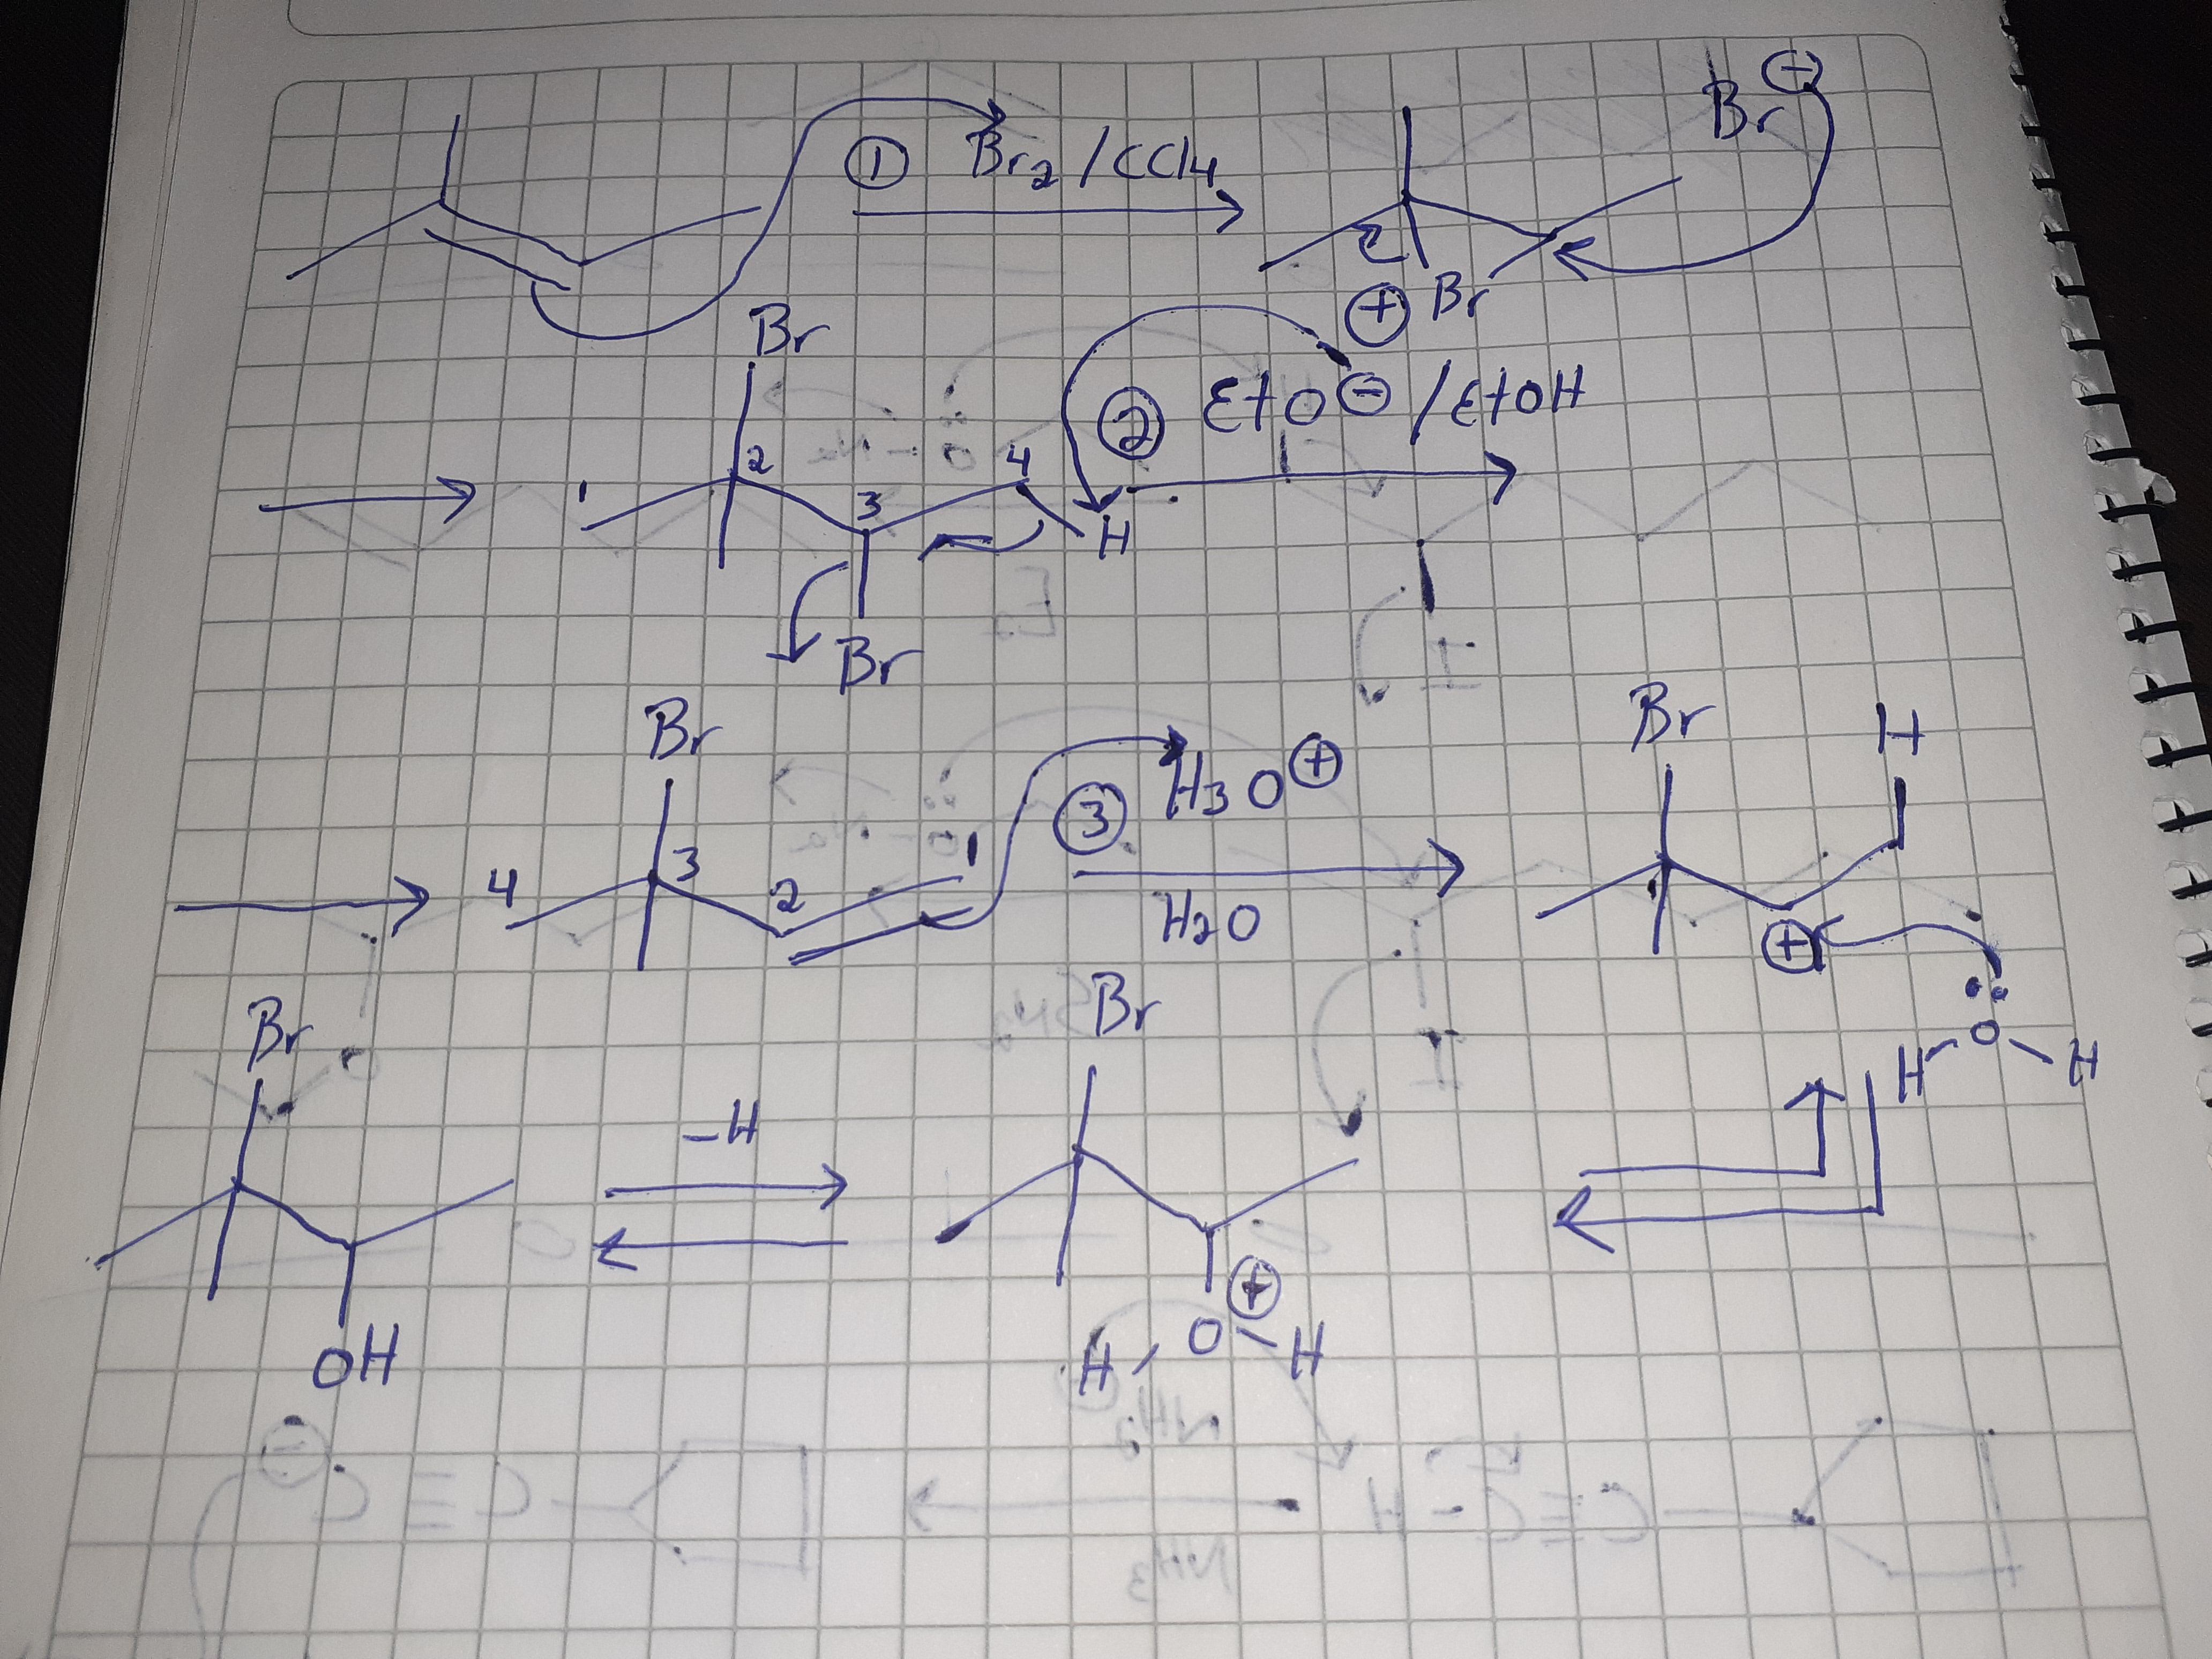 ① Br2 / CCl4
Br ⊖
⊕ Br
Br
② EtO ⊖ / EtOH
1 2 3 4
H
Br
Br
③ H3O ⊕
H2O
4 3 2 1
Br H
⊕
O
H H
Br
OH
-H
Br
⊕
H O H